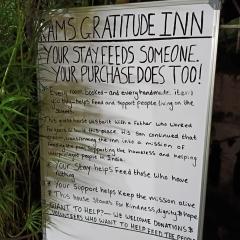 RAMS GRATITUDE INN
YOUR STAY FEEDS SOMEONE.
YOUR PURCHASE DOES TOO!
Every room booked - and every handmade item
you buy - helps feed and support people living on the
streets.
This guest house was built with a father who worked
for years to build this place. His son continued that
transforming the inn into a mission of
feeding the poor, supporting the homeless and helping
people in India.
Your Stay helps Feed those who have
nothing
Your Support helps keep the mission alive
This house stands for Kindness, dignity & Hope
WANT TO HELP? - WE WELCOME DONATIONS &
VOLUNTEERS WHO WANT TO HELP FEED THE PEOPLE